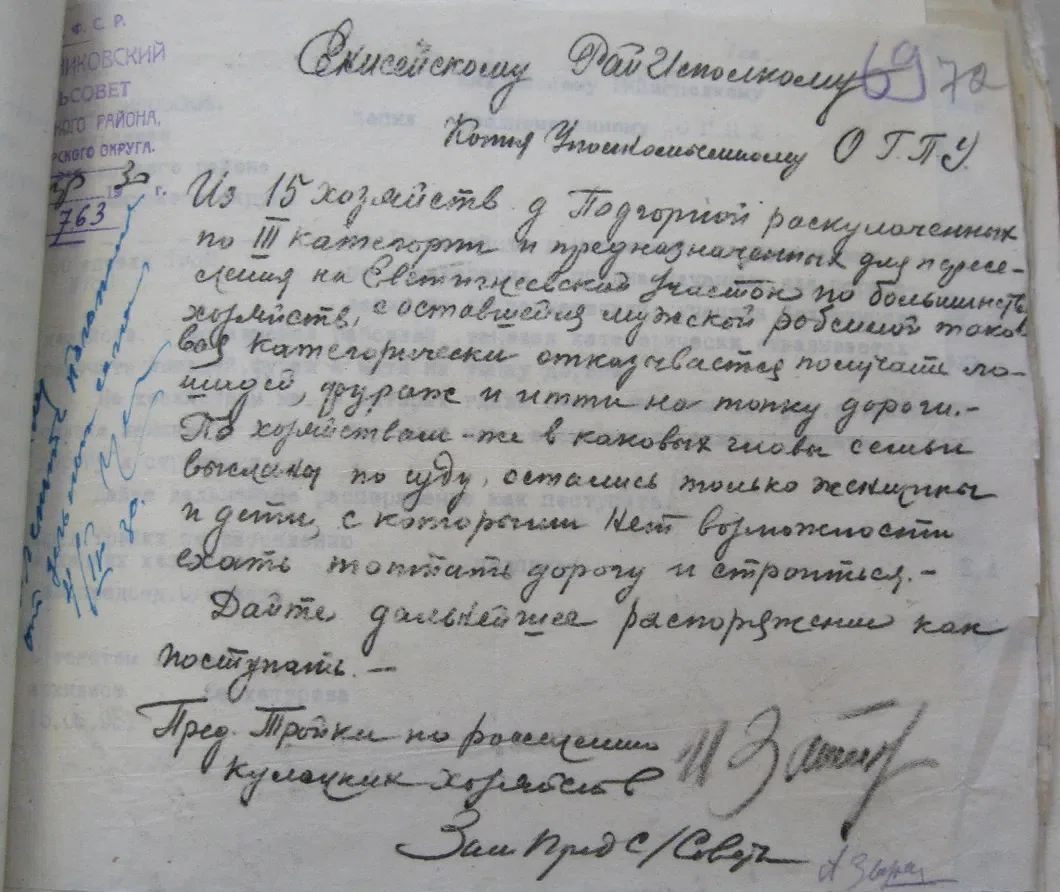 Ф. С. Р.
НИКОВСКИЙ
ЬСОВЕТ
КОГО РАЙОНА,
РСКОГО ОКРУГА.
19 30 г.
763
69 72
Енисейскому РайИсполкому
Копия Уполномоченному О Г.П.У.
Из 15 хозяйств д Подгорной раскулаченных
по III категории и предназначенных для пересе-
ления на Евтигнеевский Участок по большинству
хозяйств, с оставшейся мужской рабсилой тако-
вая категорически отказывается получать ло-
шадей, фураж и итти на топку дороги.-
По хозяйствам-же в каковых главы семьи
высланы по суду, остались только женщины
и дети, с которыми нет возможности
ехать топтать дорогу и строиться.-
Дайте дальнейшее распоряжение как
поступать.-
Пред. Тройки по расселению
Кулацких хозяйств
Зам Пред С/Совета